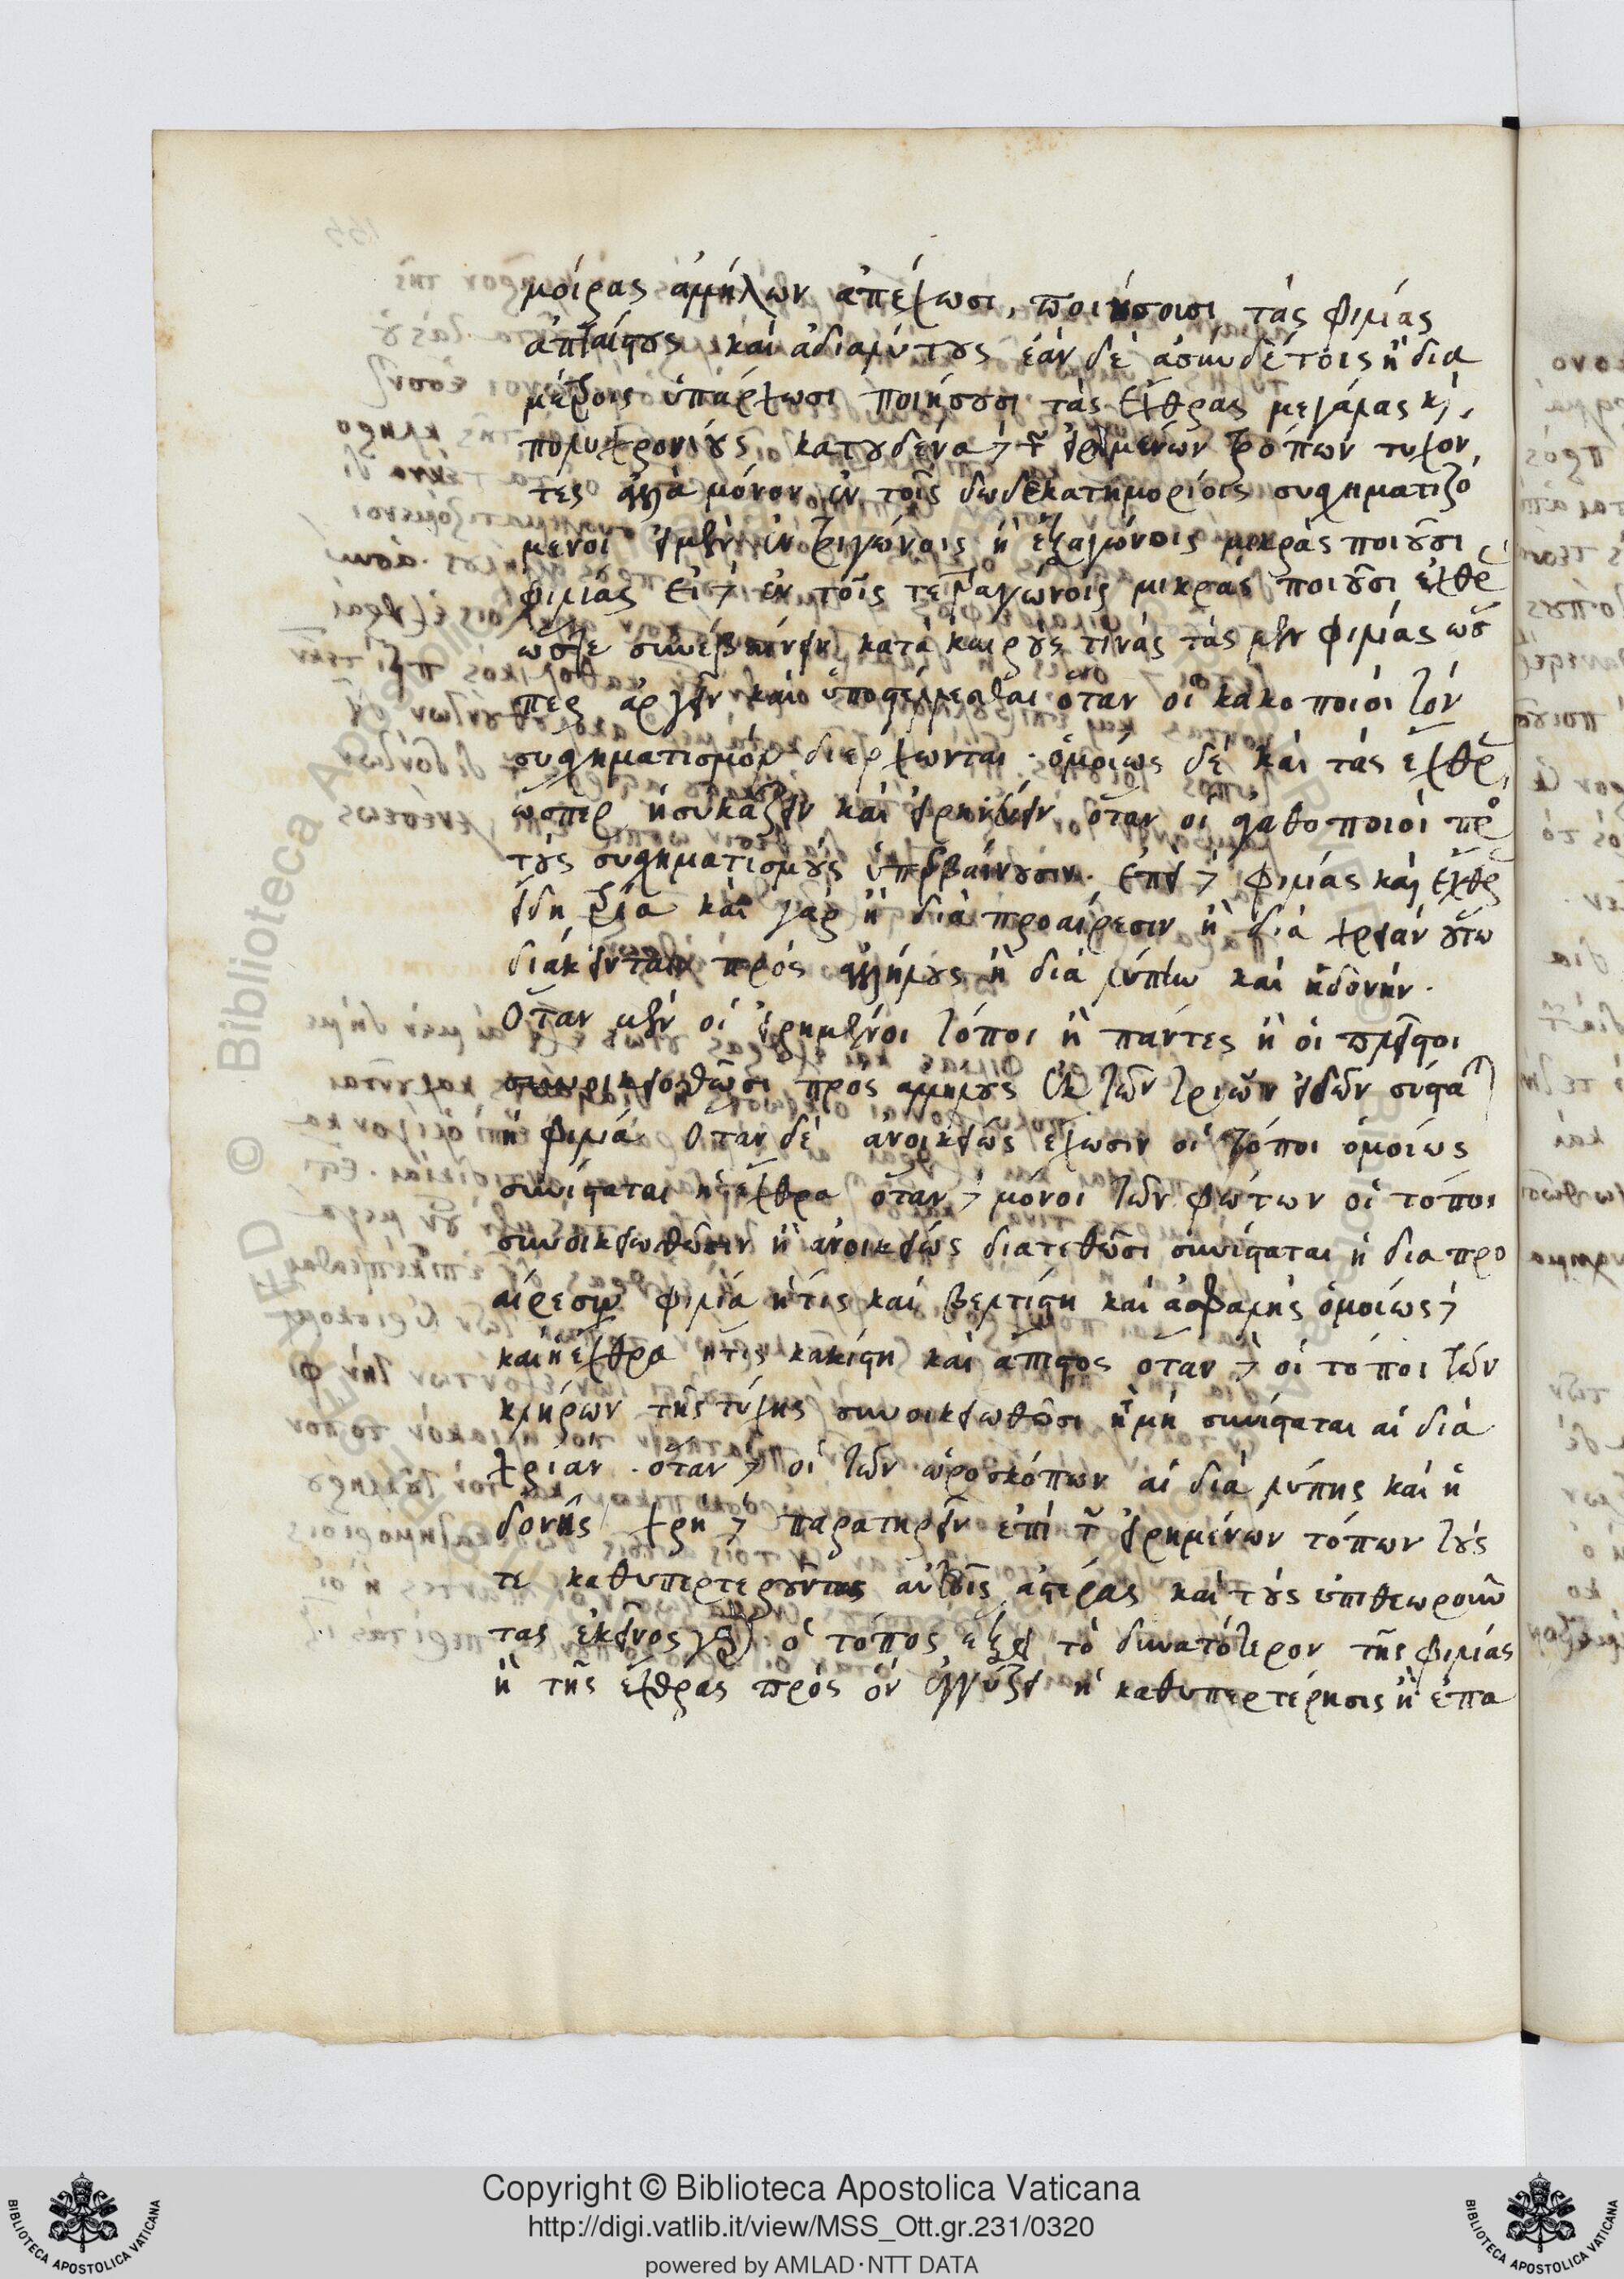 μοίρας ἀλλήλων ἀπέχωσι, ποιήσοισι τὰς φιλίας
ἀπταίστους καὶ ἀδιαλύτους ἐὰν δὲ ἀσυνδέτοις ἢ δια
μέτροις ὑπάρχωσι ποιήσουσι τὰς ἔχθρας μεγάλας κὶ
πολυχρονίους κατουδένα δὲ τῶν εἰρημένων τρόπων τυχόν
τες ἀλλὰ μόνον ἐν τοῖς δωδεκατημορίοις συσχηματιζό
μενοι εἰ μὲν ἐν τριγώνοις ἢ ἑξαγώνοις μικρὰς ποιοῦσι
φιλίας εἰ δὲ ἐν τοῖς τετραγώνοις μικρὰς ποιοῦσι ἔχθρ
ὥστε συμβαίνειν κατὰ καιρούς τινάς τὰς μὲν φιλίας ὥσ
περ ἀργεῖν καὶ ὑποστέλλεσθαι ὅταν οἱ κακοποιοὶ τὸν
συσχηματισμὸν διέρχωνται · ὁμοίως δὲ καὶ τὰς ἔχθρ
ὥσπερ ἡσυκάζειν καὶ εἰρηνεύειν ὅταν οἱ ἀγαθοποιοὶ πρ
τοὺς συσχηματισμοὺς ὑπερβαίνουσιν. ἐπεὶ δὲ φιλίας καὶ ἔχθρ
εἴδη τρία καὶ γὰρ ἢ διὰ προαίρεσιν ἢ διὰ χρείαν οὕτω
διάκεινται πρὸς ἀλλήλους ἢ διὰ λύπην καὶ ἡδονήν.
Ὅταν μὲν οἱ εἰρημένοι τόποι ἢ πάντες ἢ οἱ πλεῖστοι
συνοικειωθῶσι πρὸς ἀλλήλους ἐκ τῶν τριῶν εἰδῶν συνίστα
ἡ φιλία Ὅταν δὲ ἀνοικείως ἔχωσιν οἱ τόποι ὁμοίως
συνίσταται ἡ ἔχθρα ὅταν δὲ μόνοι τῶν φώτων οἱ τόποι
συνοικειωθῶσιν ἢ ἀνοικείως διατεθῶσι συνίσταται ἡ δια προ
αίρεσιν φιλία ἥτις καὶ βελτίστη καὶ ἀσφαλὴς ὁμοίως δὲ
καὶ ἡ ἔχθρα ἥτις κακίστη καὶ ἄπιστος ὅταν δὲ οἱ τόποι τῶν
κλήρων τῆς τύχης συνοικειωθῶσι ἢ μὴ συνίσταται αἱ διὰ
χρείαν · ὅταν δὲ οἱ τῶν ὡροσκόπων αἱ διὰ λύπης καὶ ἡ
δονῆς χρὴ δὲ παρατηρεῖν ἐπὶ τῶν εἰρημένων τόπων τοὺς
τε καθυπερτεροῦντας αὐτοῖς ἀστέρας καὶ τοὺς ἐπιθεωροῦν
τας ἐκεῖνος γὰρ ὁ τόπος ἕξει τὸ δυνατότερον τῆς φιλίας
ἢ τῆς ἔχθρας πρὸς ὃν ἐγγύζει ἡ καθυπερτέρησις ἢ ἐπα
Copyright © Biblioteca Apostolica Vaticana
http://digi.vatlib.it/view/MSS_Ott.gr.231/0320
powered by AMLAD·NTT DATA
BIBLIOTECA APOSTOLICA VATICANA
BIBLIOTECA APOSTOLICA VATICANA